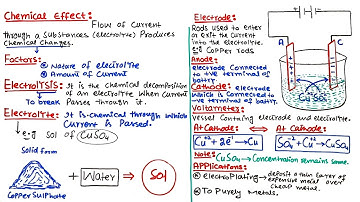 Chemical Effect:
Flow of Current
through a Substances (electrolyte) Produces
Chemical Changes.
Factors:
Nature of electrolyte
Amount of Current
Electrolysis: It is the chemical decomposition
of an electrolyte when Current
To break Passes through it.
Electrolyte: It is chemical through which
Current is Passed.
e.g Sol of CuSO4
Solid form
+ Water ⇒ Sol
Copper Sulphate
Electrode:
Rods used to enter
or exit the Current
into the electrolyte.
e.g Copper rods
Anode:
electrode Connected
to +ve terminal of
battery.
Cathode: electrode
which is Connected to
-ve terminal of battry.
Vessel Containing electrode and electrolyte.
A
C
CuSO4
At Cathode:
At Cathode:
Cu+2 + 2e- → Cu
SO4 + Cu → CuSO4
Note: CuSO4 → Concentration remains same.
Applications:
ElectroPlating → deposit a thin layer of
expensive metal over
cheap metal.
To Purely Metals.